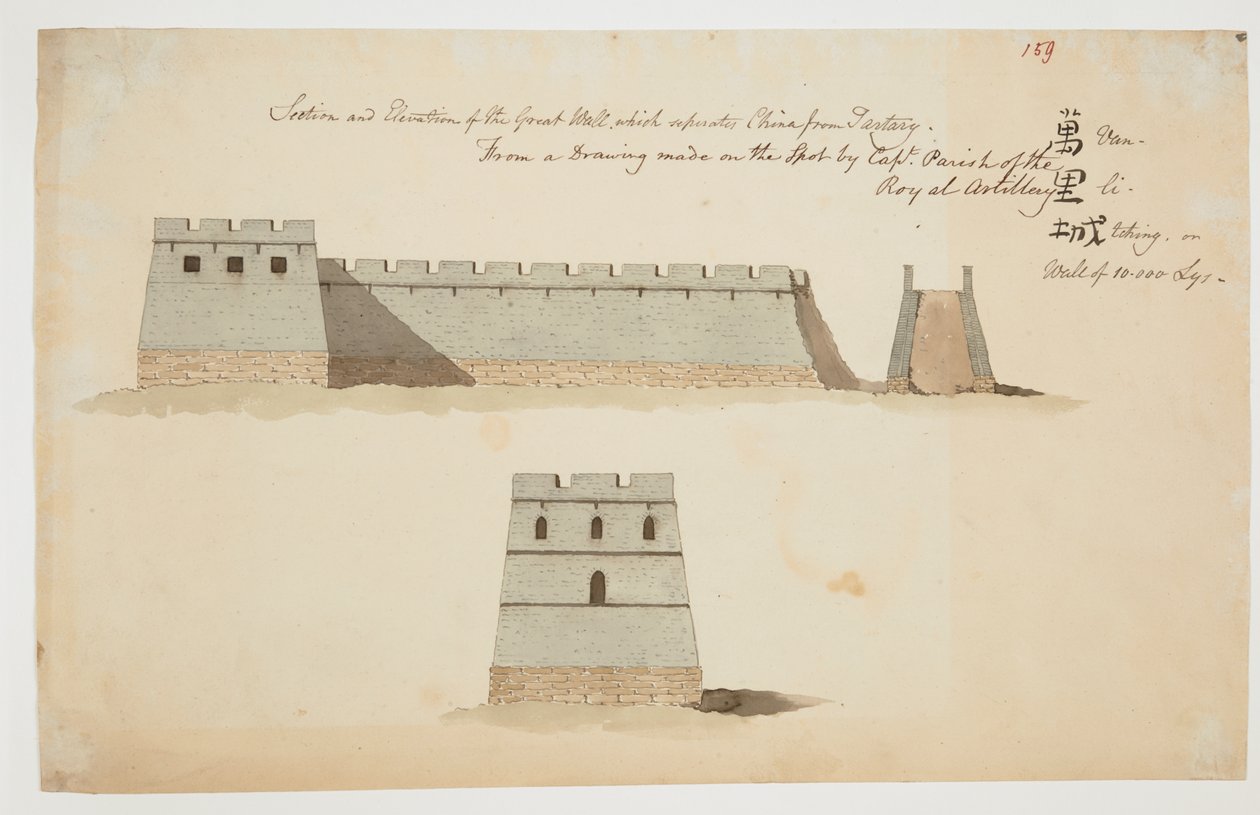 159
Section and Elevation of the Great Wall which seperates China from Tartary.
From a Drawing made on the Spot by Capt. Parish of the
Royal Artillery
萬 Van-
里 li-
城 tching, or
Wall of 10-000 Lys-